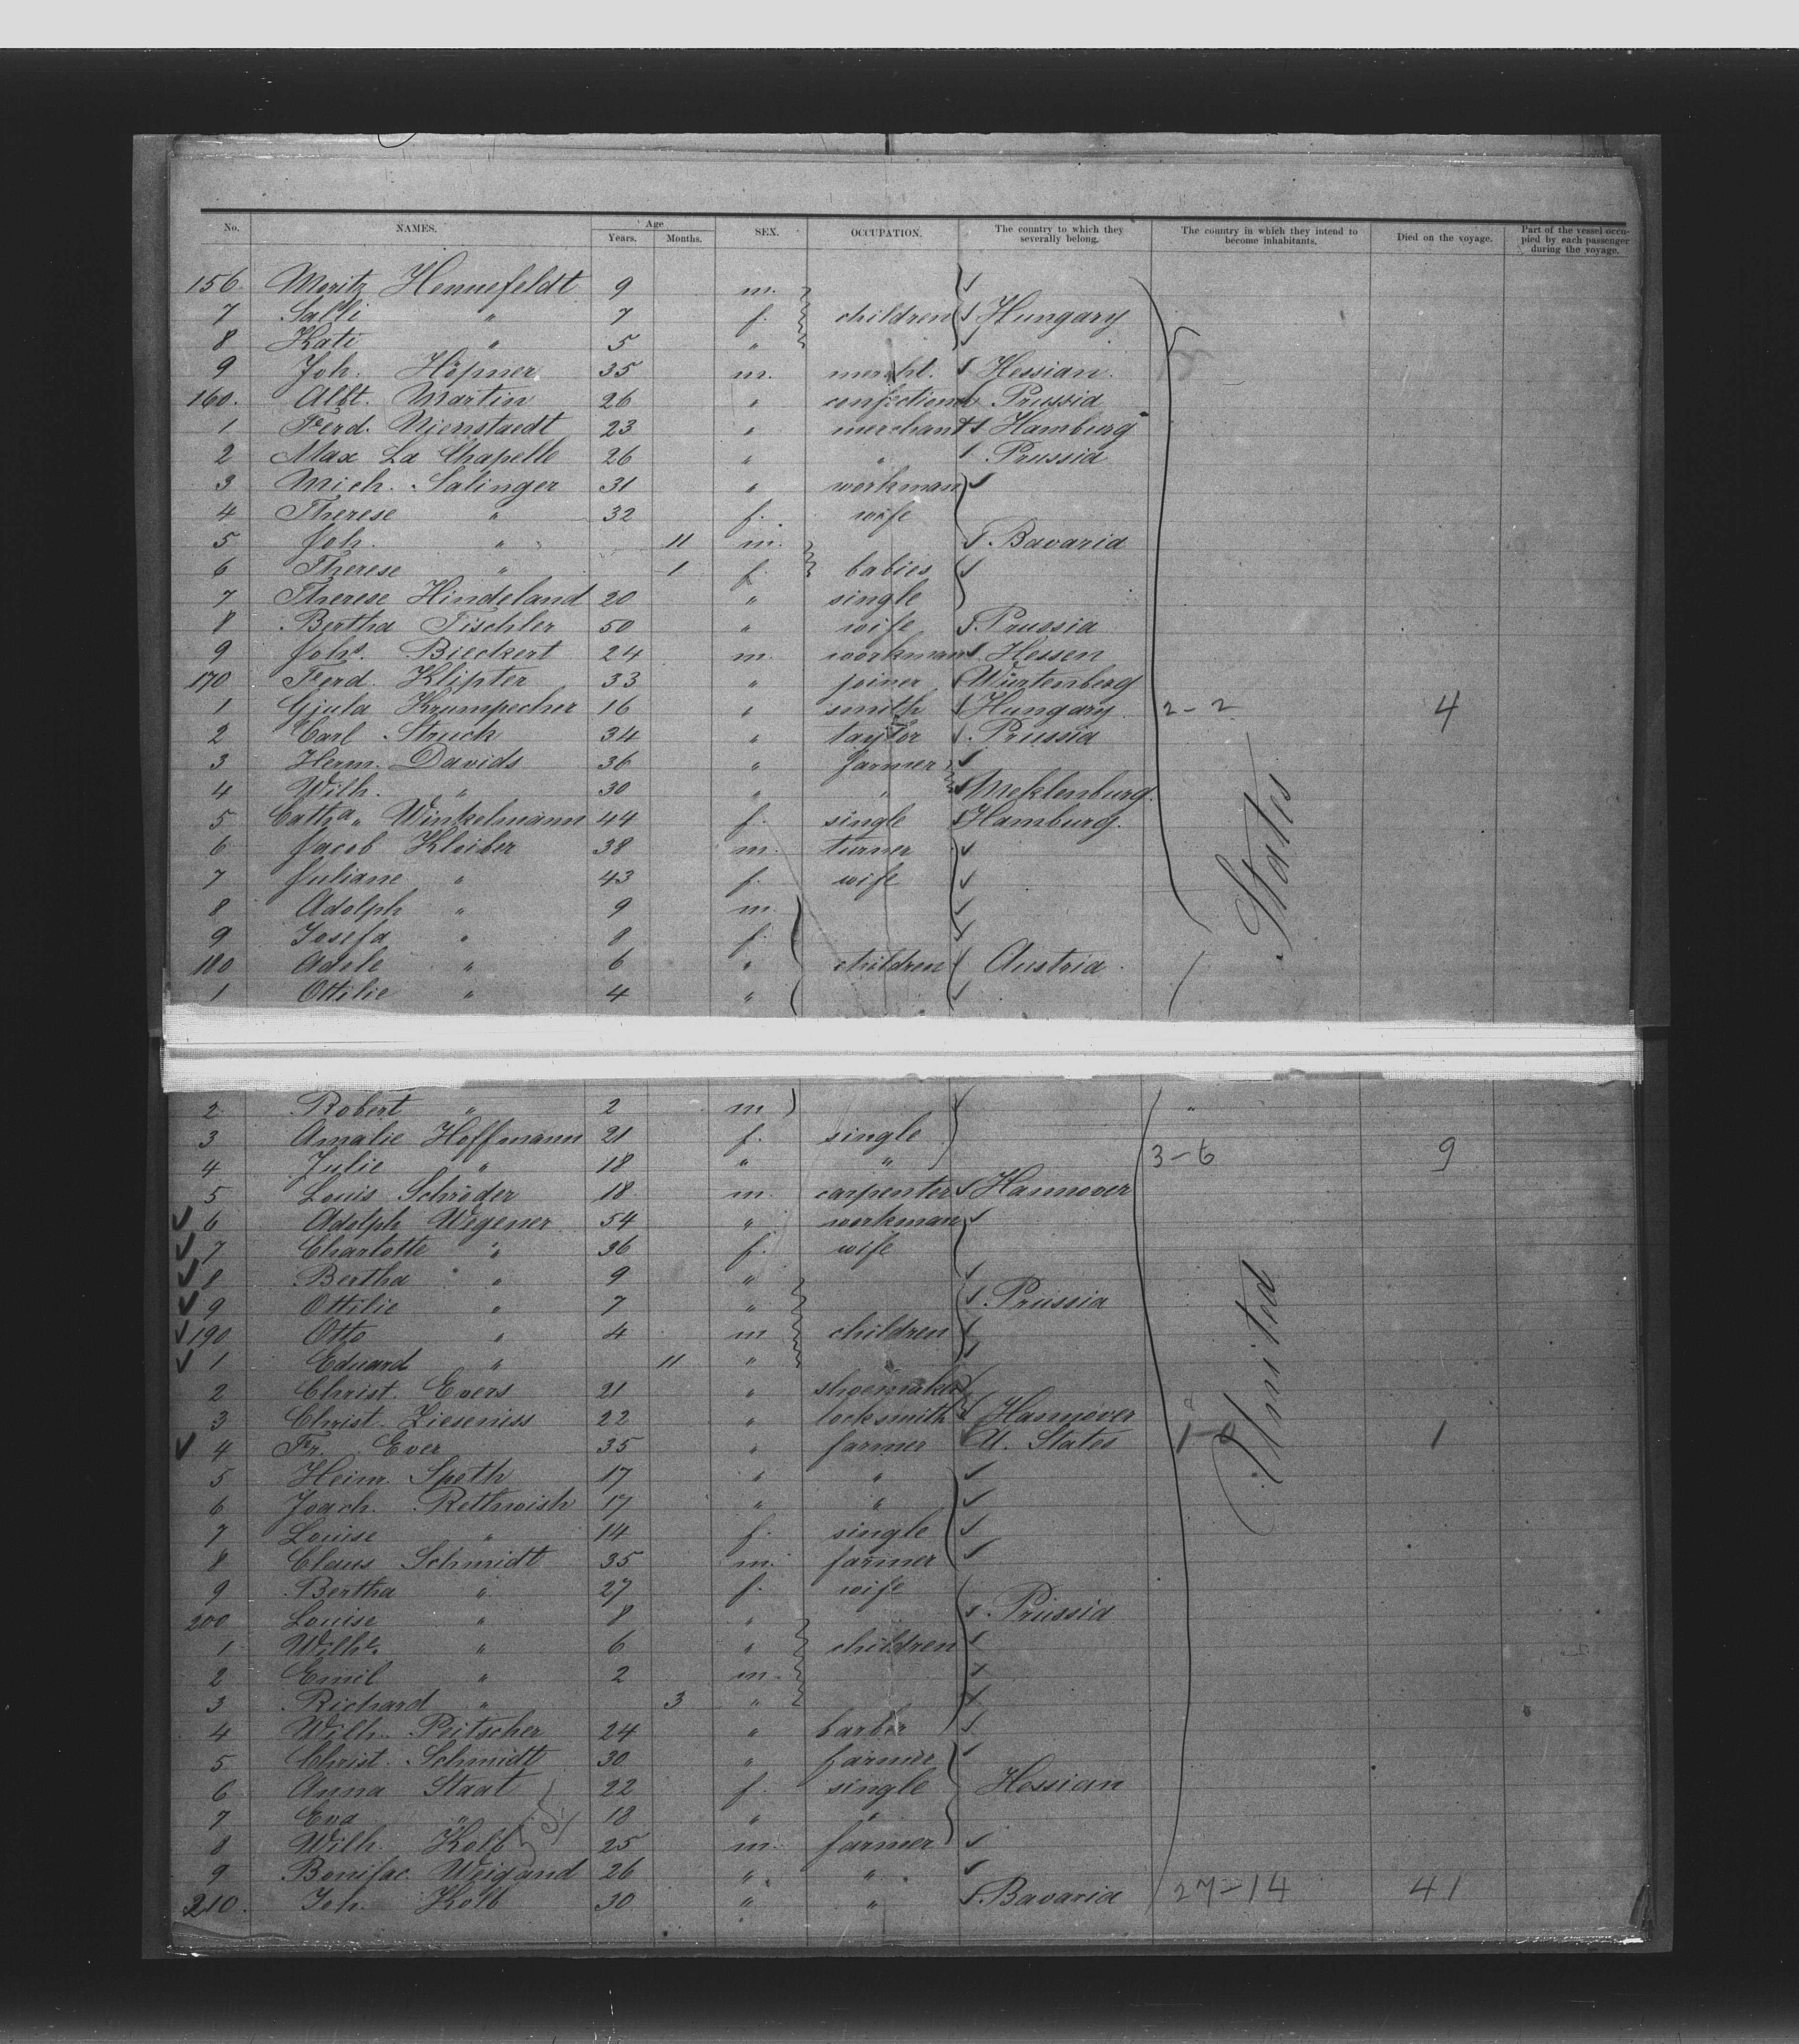 No. NAMES. Age Years. Months. SEX. OCCUPATION. The country to which they severally belong. The country in which they intend to become inhabitants. Died on the voyage. Part of the vessel occupied by each passenger during the voyage.
156. Moritz Hennefeldt 9 m.
7 Salli " 7 f. children Hungary
8 Kati " 5 "
9 Joh. Höpner 35 m. mercht. Hessian.
160. Albt. Martin 26 " confectioner Prussia
1 Ferd. Nienstaedt 23 " merchant Hamburg
2 Max La Chapelle 26 " " Prussia
3 Mich. Salinger 31 " workman
4 Therese " 32 f. wife
5 Joh. " 11 m. Bavaria
6 Therese " 1 f. babies
7 Therese Hindeland 20 " single
8 Bertha Tischler 50 " wife Prussia
9 Johs. Bieckert 24 m. workman Hessen
170 Ferd. Klipter 33 " joiner Würtenberg
1 Gjula Krumpecher 16 " smith Hungary. 2-2 4
2 Carl Struck 34 " taylor Prussia
3 Herm. Davids 36 " farmer
4 Wilh. " 30 " " Meklenburg.
5 Catha. Winkelmann 44 f. single Hamburg.
6 Jacob Kleiber 38 m. turner
7 Juliane " 43 f. wife
8 Adolph " 9 m.
9 Josefa " 8 f.
180 Adele " 6 " children Austria.
1 Ottilie " 4 "
2 Robert " 2 m "
3 Amalie Hoffmann 21 f. single
4 Julie " 18 " " 3-6 9
5 Louis Schröder 18 m. carpenter Hannover
6 Adolph Wegener 54 " workman
7 Charlotte " 36 f. wife
8 Bertha " 9 "
9 Ottilie " 7 " Prussia
190 Otto " 4 m children
1 Eduard " 11 "
2 Christ. Evers 21 " shoemaker
3 Christ. Zieseniss 22 " locksmith Hannover
4 Fr. Ever 35 " farmer U. States 1-0 1
5 Heinr. Speth 17 " "
6 Joach. Rethwish 17 " "
7 Louise " 14 f. single
8 Claus Schmidt 35 m. farmer
9 Bertha " 27 f. wife
200 Louise " 8 " Prussia
1 Wilhe. " 6 " children
2 Emil " 2 m.
3 Richard " 3 "
4 Wilh. Peitscher 24 " barber
5 Christ. Schmidt 30 " farmer
6 Anna Staat 22 f. single Hessian
7 Eva " 18 " "
8 Wilh. Kolb 25 m. farmer
9 Bonifac. Weigand 26 " "
210. Joh. Kolb 30 " " Bavaria 27-14 41
United States